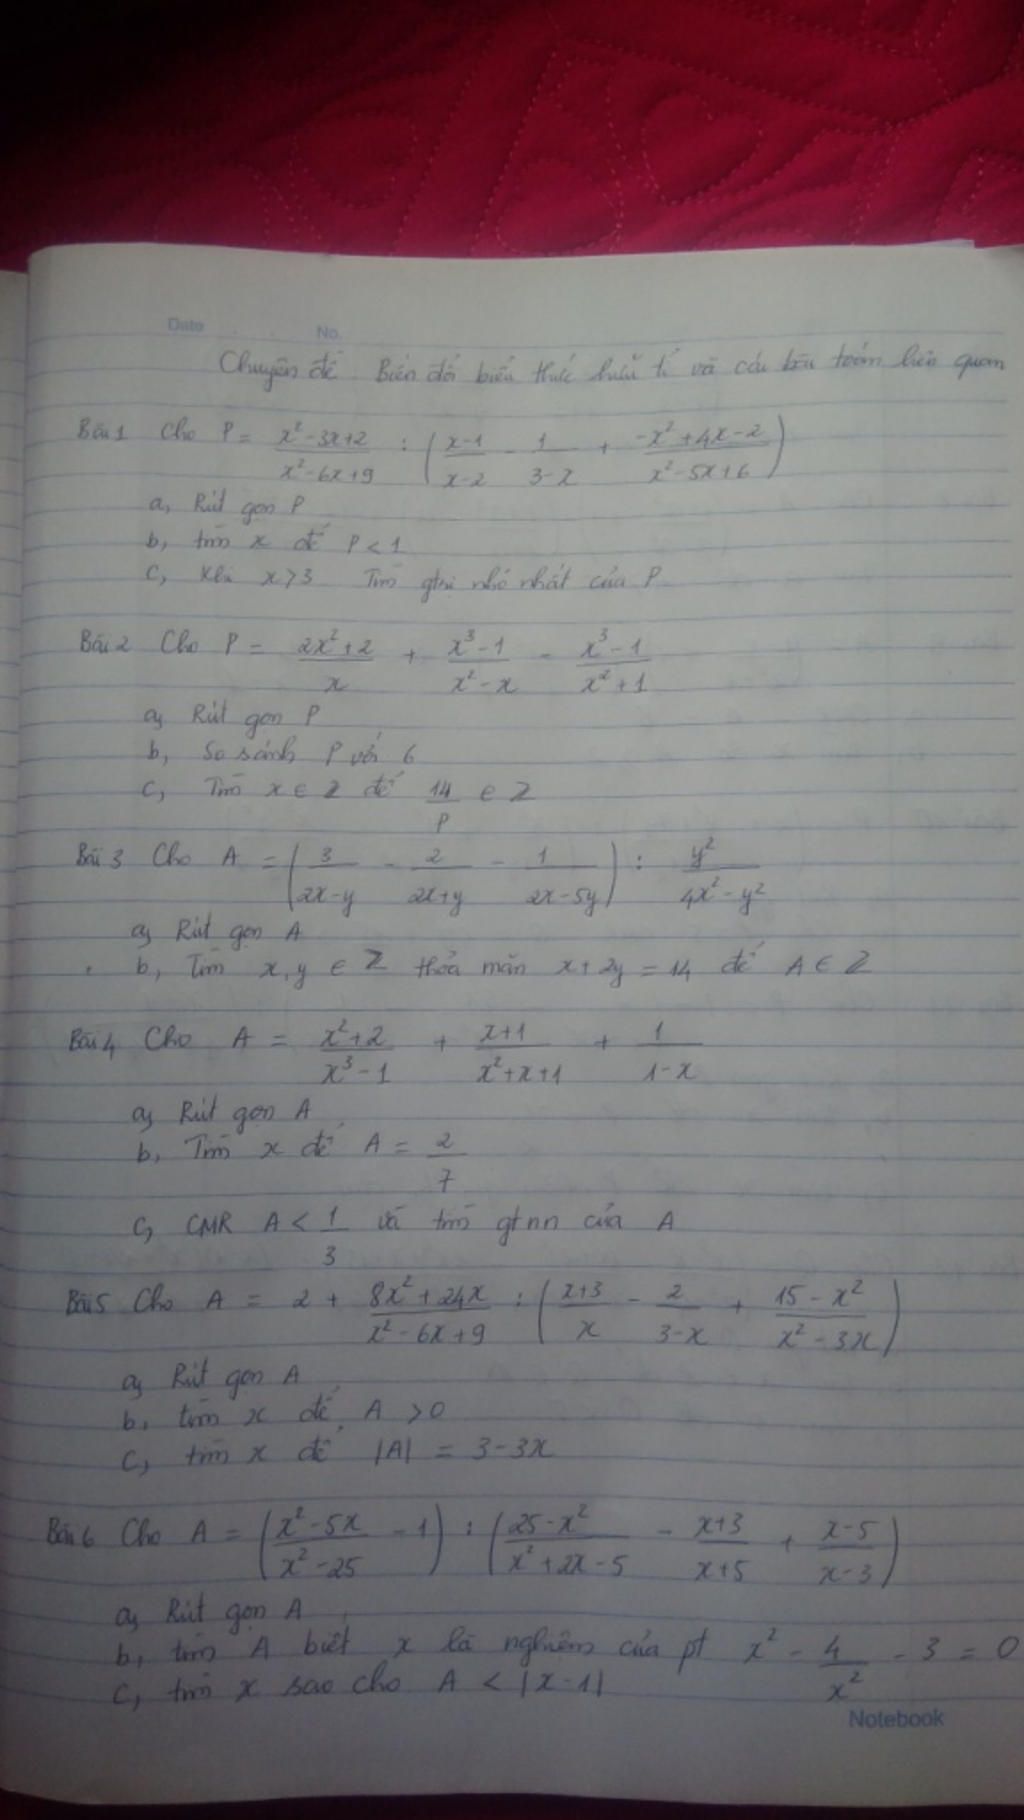 Date No.
Chuyên đề Biến đổi biểu thức hữu tỉ và các bài toán liên quan
Bài 1 Cho P = (x² - 3x + 2)/(x² - 6x + 9) : ((x-1)/(x-2) - 1/(3-x) + (-x² + 4x - 2)/(x² - 5x + 6))
a, Rút gọn P
b, tìm x để P < 1
c, Khi x > 3 Tìm gtrị nhỏ nhất của P
Bài 2 Cho P = (2x² + 2)/x + (x³ - 1)/(x² - x) - (x³ - 1)/(x² + 1)
a, Rút gọn P
b, So sánh P với 6
c, Tìm x ∈ Z để 14/P ∈ Z
Bài 3 Cho A = (3/(2x-y) - 2/(2x+y) - 1/(2x-5y)) : y²/(4x² - y²)
a, Rút gọn A
b, Tìm x, y ∈ Z thỏa mãn x + 2y = 14 để A ∈ Z
Bài 4 Cho A = (x² + 2)/(x³ - 1) + (x+1)/(x² + x + 1) + 1/(1-x)
a, Rút gọn A
b, Tìm x để A = 2/7
c, CMR A < 1/3 và tìm gtnn của A
Bài 5 Cho A = 2 + (8x² + 24x)/(x² - 6x + 9) : ((x+3)/x - 2/(3-x) + (15 - x²)/(x² - 3x))
a, Rút gọn A
b, tìm x để A > 0
c, tìm x để |A| = 3 - 3x
Bài 6 Cho A = ((x² - 5x)/(x² - 25) - 1) : ((25 - x²)/(x² + 2x - 5) - (x+3)/(x+5) + (x-5)/(x-3))
a, Rút gọn A
b, tìm A biết x là nghiệm của pt x² - 4/x² - 3 = 0
c, tìm x sao cho A < |x - 1|
Notebook